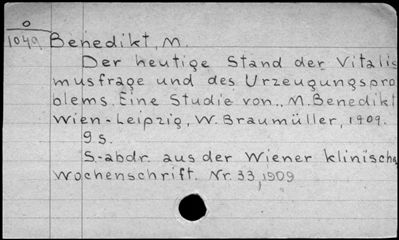 O
1049. Benedikt, M.
Der heutige Stand der Vitalis
musfrage und des Urzeugungspro
blems. Eine Studie von.. M. Benedikt
Wien-Leipzig, W. Braumüller, 1909.
9 s.
S.-abdr. aus der Wiener klinische
Wochenschrift. Nr. 33, 1909